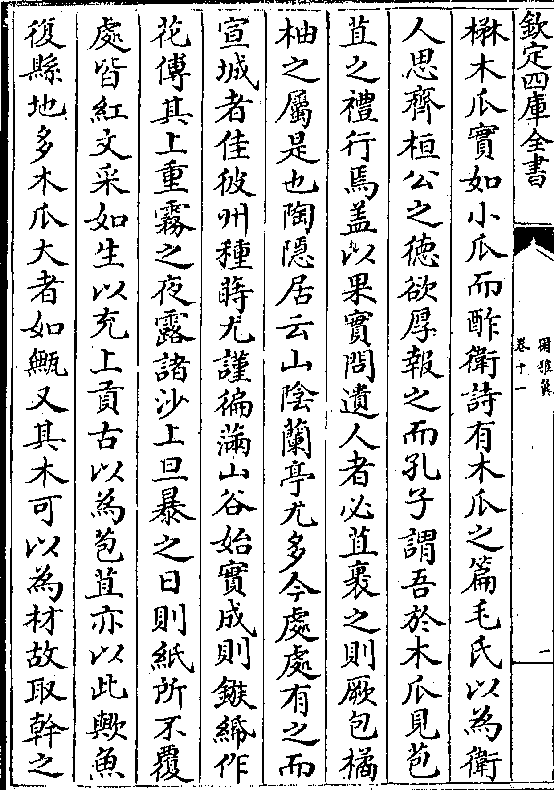 欽定四庫全書
爾雅翼
卷十一
一
楙木𤓰實如小𤓰而酢衛詩有木𤓰之篇毛氏以為衛
人思齊桓公之徳欲厚報之而孔子謂吾於木𤓰見苞
苴之禮行焉盖以果實問遺人者必苴裹之則厥包橘
柚之屬是也陶隠居云山隂蘭亭尤多今處處有之而
宣城者佳彼州種蒔尤謹徧滿山谷始實成則鏃紙作
花傅其上重霧之夜露諸沙上旦暴之日則紙所不覆
處皆紅文采如生以充上貢古以為苞苴亦以此歟魚
復縣地多木𤓰大者如甌又其木可以為材故取幹之